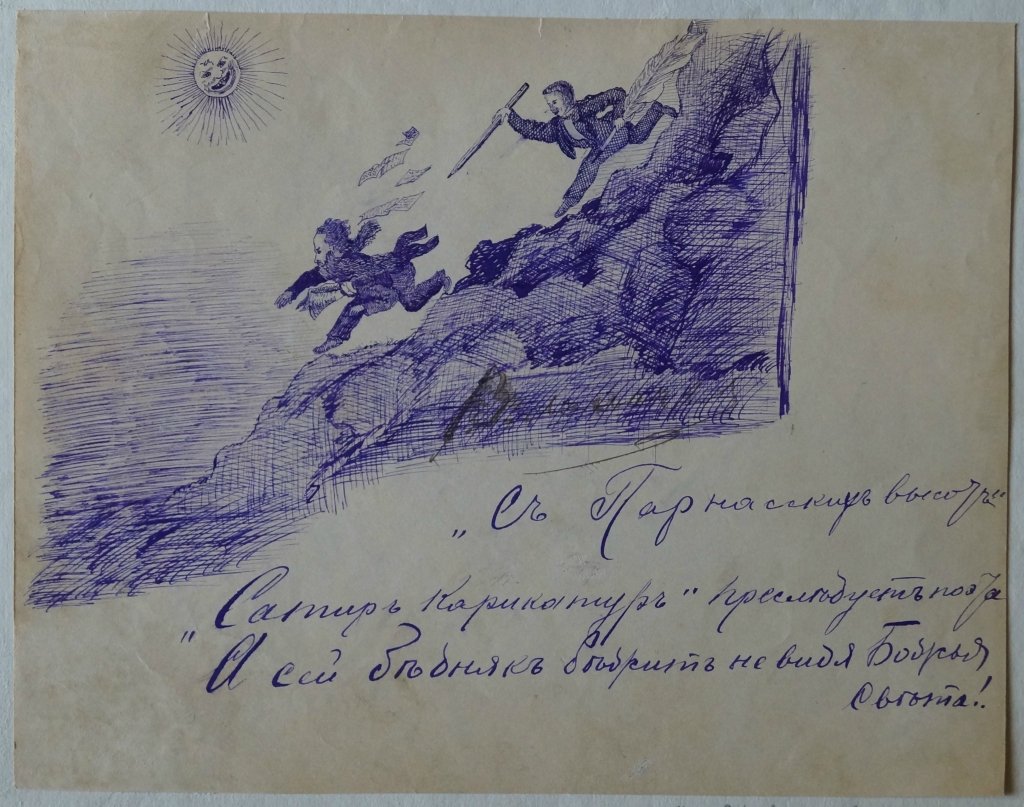 „Съ Парнасскихъ высотъ“
„Сатиръ Карикатуръ“ преслѣдуетъ поэта
А сей бѣднякъ бѣжитъ не видя Божья
свѣта!